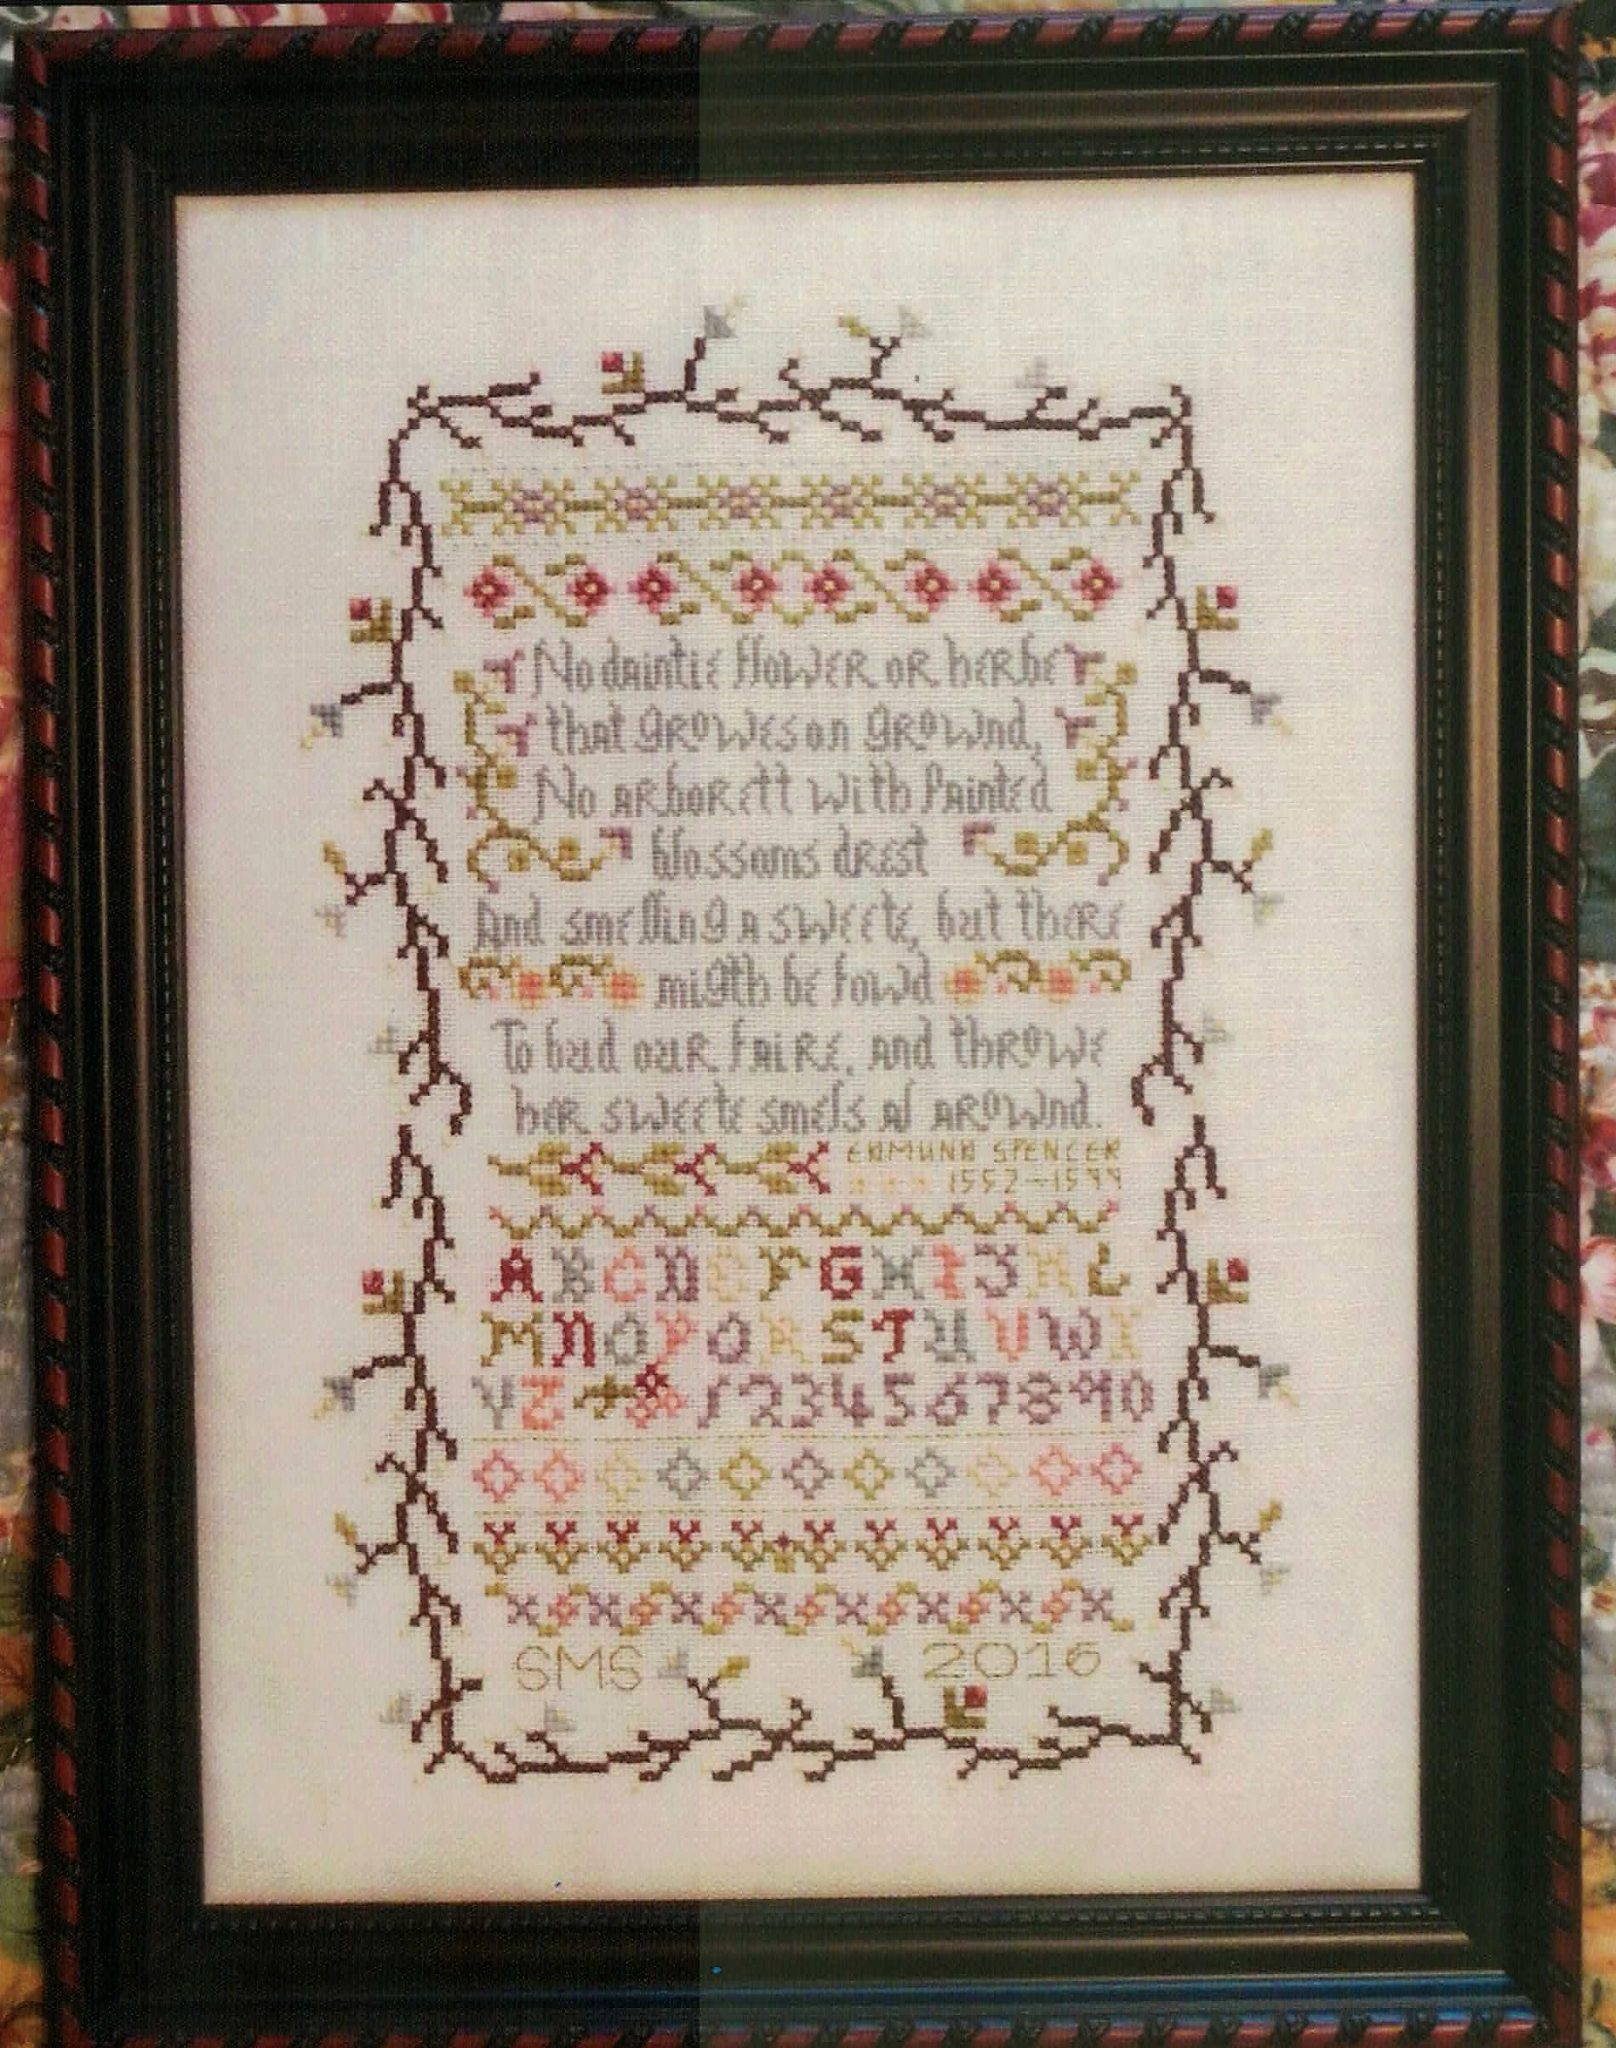 No daintie flower or herbe
that growes on grownd,
No arborett with painted
blossoms drest
And smelling a sweete, but there
migth be fowd
To bud our faire, and throwe
her sweete smels al arownd.
EDMUND SPENCER
1552~1599
ABCDEFGHIJKL
MNOPQRSTUVWX
YZ 1234567890
SMS 2016